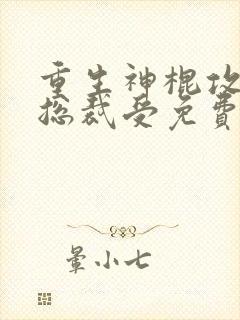 重生神棍攻
总裁受免费
晕小七